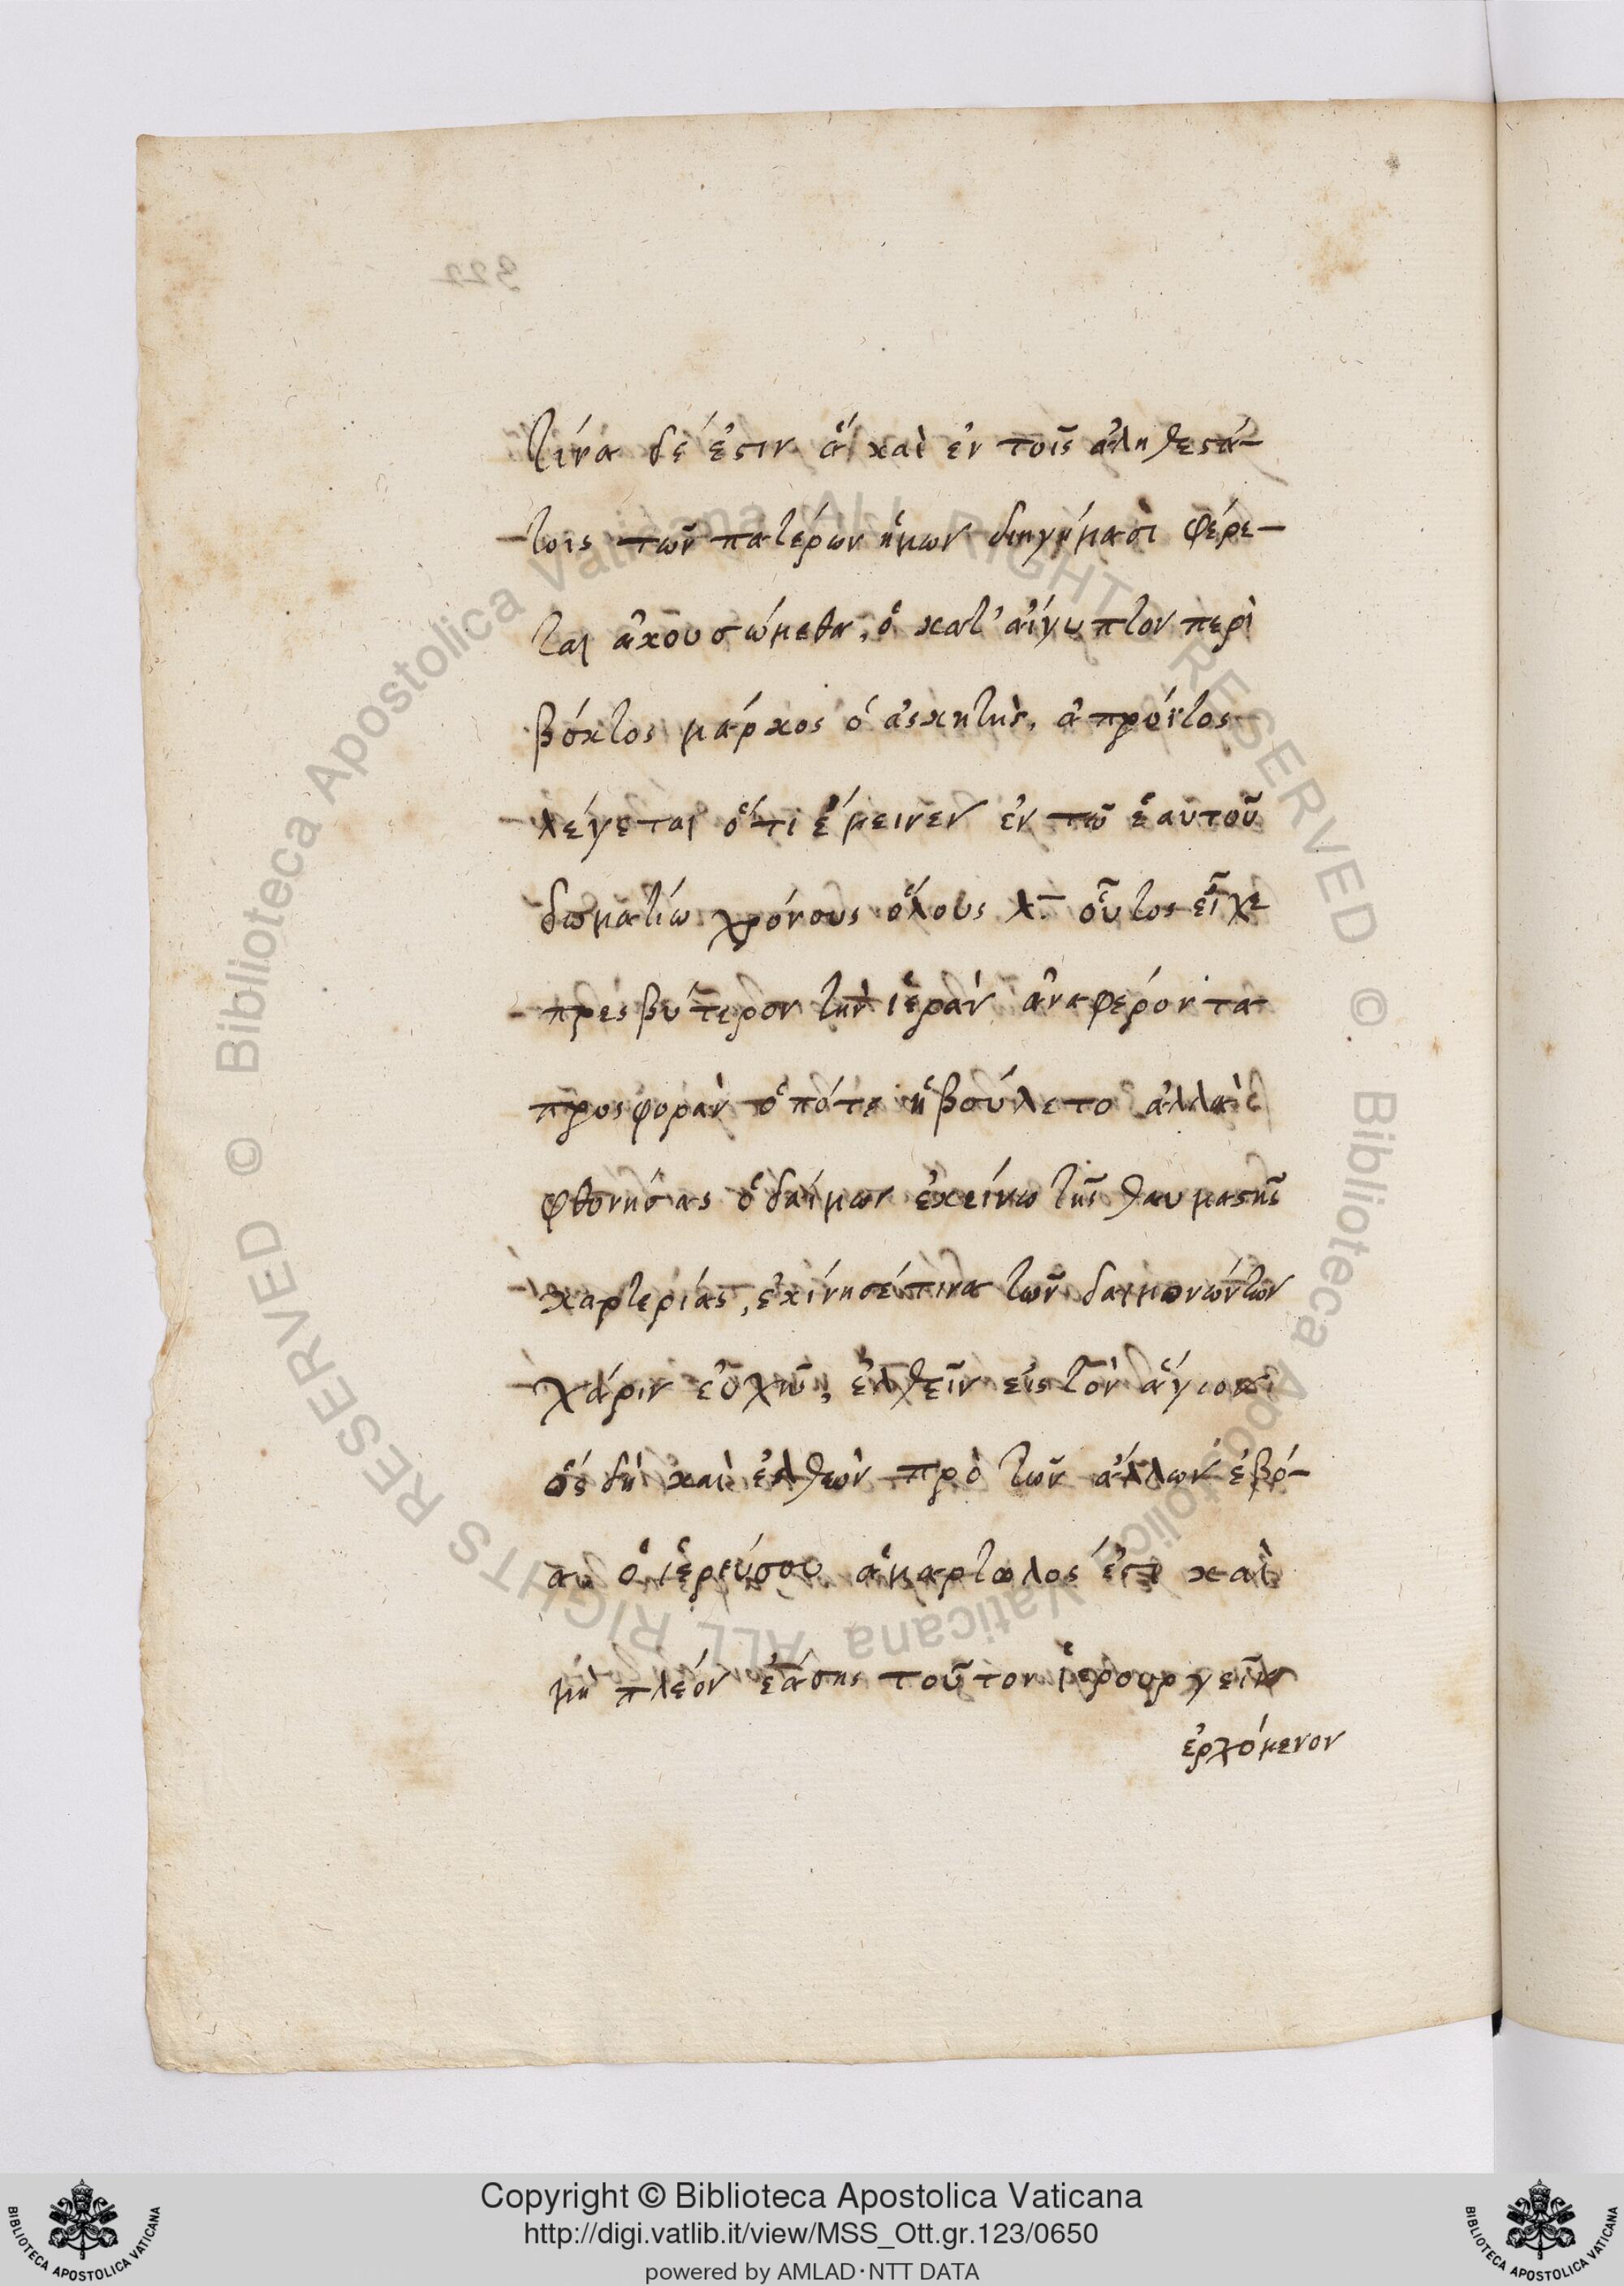 τίνα δέ ἐστιν ἃ καὶ ἐν τοῖς ἀληθεστά-
τοις τῶν πατέρων ἡμων διηγήμασι φέρε-
ται ἀκουσώμεθα, ὁ κατ' αἴγυπτον περὶ
βόητος μάρκος ὁ ἀσκητὴς, ἀπρόϊτος
λέγεται ὅτι ἔμεινεν ἐν τῶ ἑαυτοῦ
δωματίω χρόνους ὅλους λ. οὗτος εἶχε
πρεσβύτερον τὴν ἱερὰν ἀναφέροντα
προσφορὰν ὁπότε ἠβούλετο ἀλλὰ
φθονήσας ὁ δαίμων ἐκείνω τῆς θαυμαστῆς
καρτερίας, ἐκίνησέ τινα τῶν δαιμονώντων
χάριν εὐχῆς, ἐλθεῖν εἰς τὸν ἅγιον
ὅς δὴ καὶ ἐλθὼν πρὸ τῶν ἄλλων ἐβό-
α ὁ ἱερεύσου ἁμαρτωλος ἐστι καὶ
μὴ πλέον ἐάσης τοῦτον ἱερουργεῖν
ἐρχόμενον
322
Copyright © Biblioteca Apostolica Vaticana
http://digi.vatlib.it/view/MSS_Ott.gr.123/0650
powered by AMLAD·NTT DATA
© Biblioteca Apostolica Vaticana ALL RIGHTS RESERVED
© Biblioteca Apostolica Vaticana ALL RIGHTS RESERVED
BIBLIOTECA APOSTOLICA VATICANA
BIBLIOTECA APOSTOLICA VATICANA